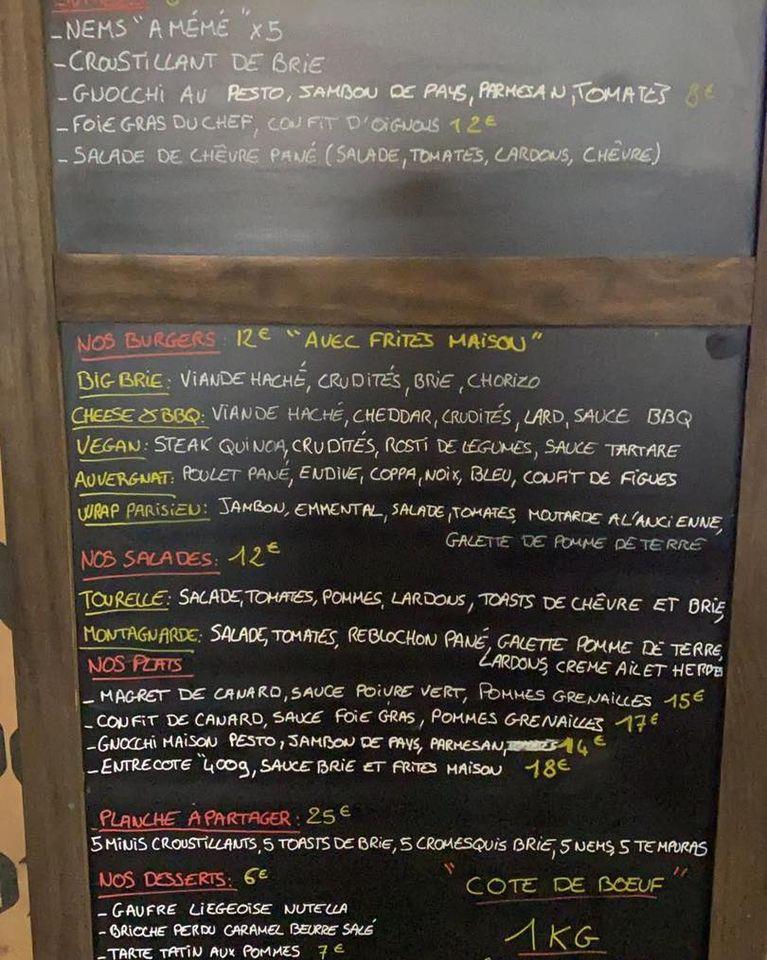 - NEMS "A MÉMÉ" x5
- CROUSTILLANT DE BRIE
- GNOCCHI AU PESTO, JAMBON DE PAYS, PARMESAN, TOMATES 8€
- FOIE GRAS DU CHEF, CONFIT D'OIGNONS 12€
- SALADE DE CHÊVRE PANÉ (SALADE, TOMATES, LARDONS, CHÊVRE)
NOS BURGERS: 12€ "AVEC FRITES MAISON"
BIG BRIE: VIANDE HACHÉ, CRUDITÉS, BRIE, CHORIZO
CHEESE & BBQ: VIANDE HACHÉ, CHEDDAR, CRUDITÉS, LARD, SAUCE BBQ
VEGAN: STEAK QUINOA, CRUDITÉS, ROSTI DE LÉGUMES, SAUCE TARTARE
AUVERGNAT: POULET PANÉ, ENDIVE, COPPA, NOIX, BLEU, CONFIT DE FIGUES
WRAP PARISIEN: JAMBON, EMMENTAL, SALADE, TOMATES, MOUTARDE A L'ANCIENNE,
GALETTE DE POMME DE TERRE
NOS SALADES: 12€
TOURELLE: SALADE, TOMATES, POMMES, LARDONS, TOASTS DE CHÊVRE ET BRIE,
MONTAGNARDE: SALADE, TOMATES, REBLOCHON PANÉ, GALETTE POMME DE TERRE,
LARDONS, CREME AIL ET HERBE
NOS PLATS
- MAGRET DE CANARD, SAUCE POIVRE VERT, POMMES GRENAILLES 15€
- CONFIT DE CANARD, SAUCE FOIE GRAS, POMMES GRENAILLES 17€
- GNOCCHI MAISON PESTO, JAMBON DE PAYS, PARMESAN, 14€
- ENTRECOTE "400g, SAUCE BRIE ET FRITES MAISON 18€
PLANCHE À PARTAGER: 25€
5 MINIS CROUSTILLANTS, 5 TOASTS DE BRIE, 5 CROMESQUIS BRIE, 5 NEMS, 5 TEMPURAS
NOS DESSERTS: 6€
- GAUFRE LIEGEOISE NUTELLA
- BRIOCHE PERDU CARAMEL BEURRE SALÉ
- TARTE TATIN AUX POMMES 7€
"COTE DE BOEUF"
1KG